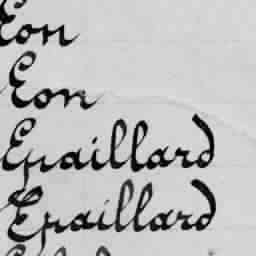 Eon
Eon
Epaillard
Epaillard